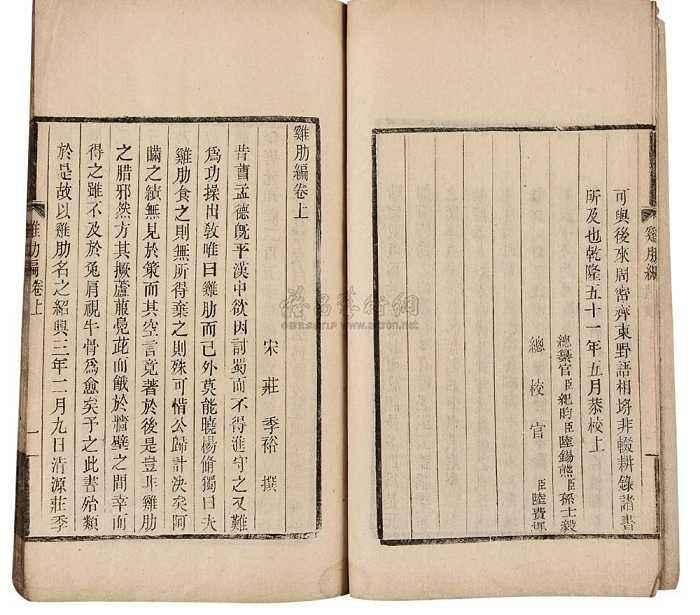 可與後來周密齊東野語相埒非輟耕錄諸書
所及也乾隆五十一年五月恭校上
總纂官臣紀昀臣陸錫熊臣孫士毅
總校官臣陸費墀
雞肋編
雞肋編卷上
宋莊季裕撰
昔曹孟德既平漢中欲因討蜀而不得進守之又難
為功操出教唯曰雞肋而已外莫能曉楊脩獨曰夫
雞肋食之則無所得棄之則殊可惜公歸計決矣阿
瞞之績無見於策而其空言竟著於後是豈非雞肋
之腊邪然方其撅蘆菔鳧茈而餓於牆壁之間幸而
得之雖不及於兔肩視牛骨為愈矣予之此書殆類
於是故以雞肋名之紹興三年二月九日清源莊季
雞肋編卷上
一
www.artron.net